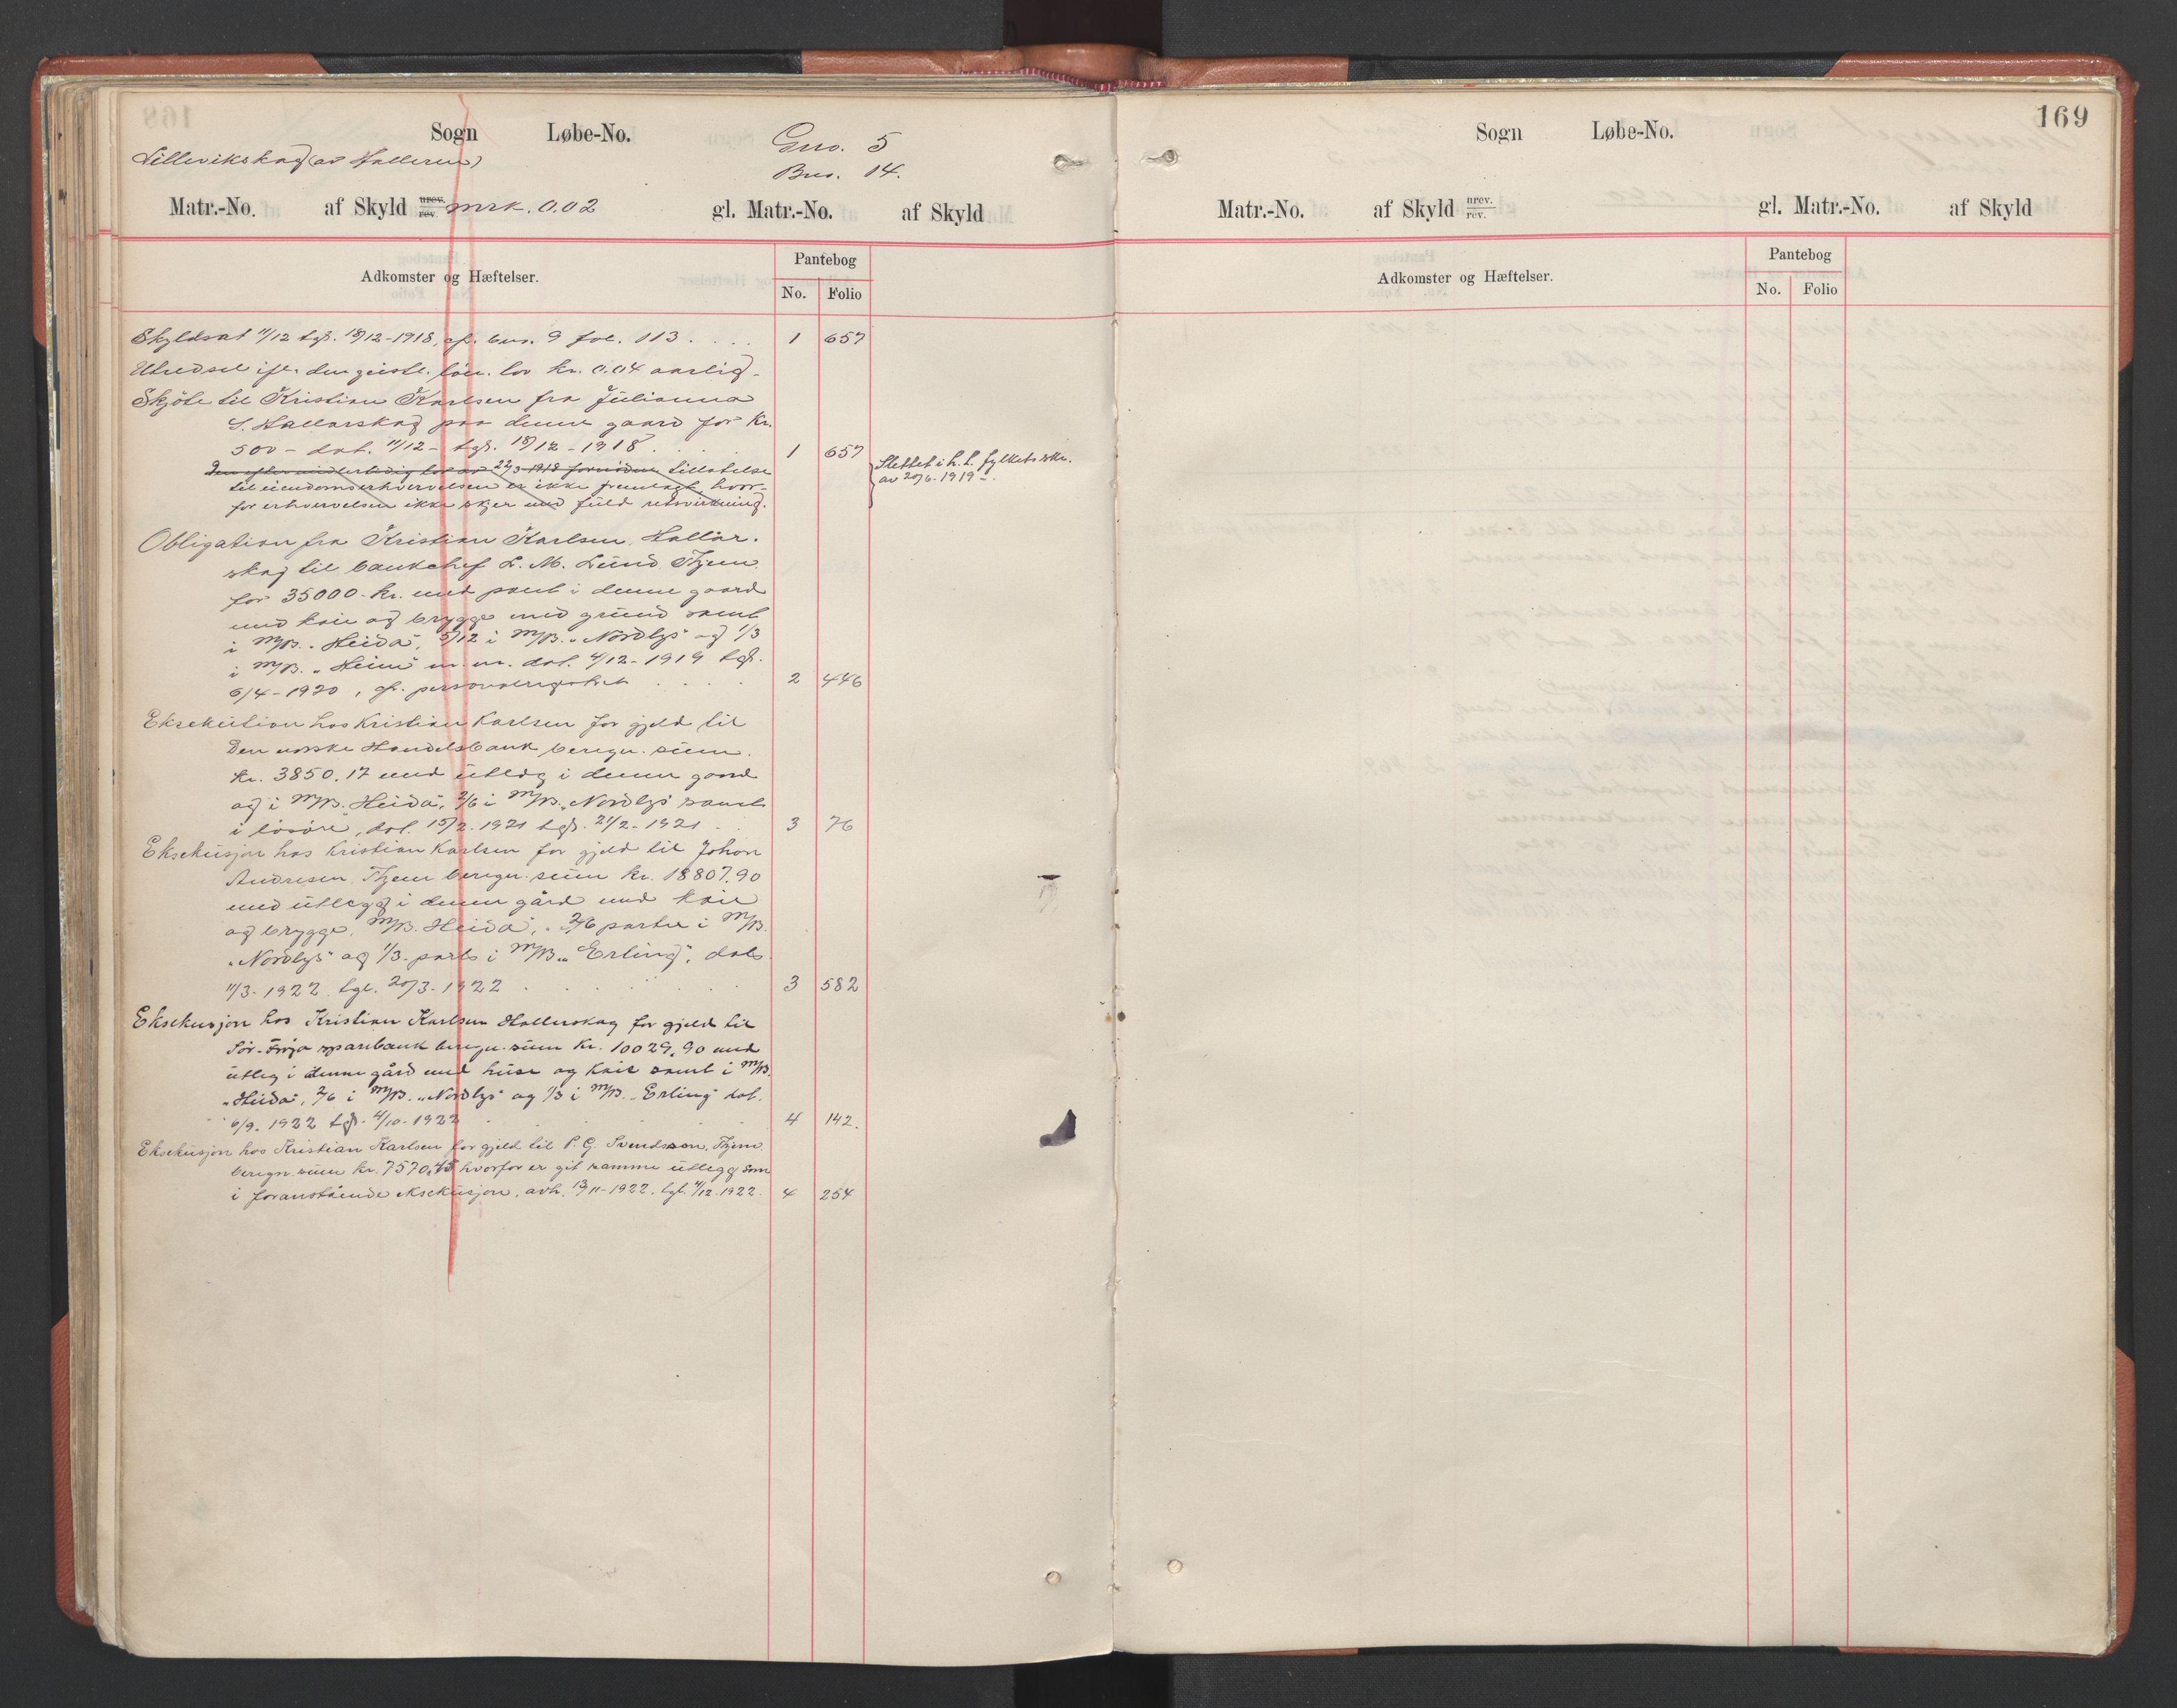 169
Sogn Løbe-No. Gno. 5
Lillevikskag (av Halleren) Bno. 14.
Matr.-No. af Skyld urev. rev. mrk. 0.02 gl. Matr.-No. af Skyld
Adkomster og Hæftelser. Pantebog
No. Folio
Skyldsat 11/12 tgl. 18/12-1918, cf. bno. 9 fol. 113 . . . . 1 657
Utredsel ifl. den geistl. lön. lov kr. 0.04 aarlig.
Skjöte til Kristian Karlsen fra Julianna
S. Hallarskag paa denne gaard for Kr.
500 – dat. 11/12 – tgl. 18/12 – 1918 . . . . 1 657
Den efter midlertidig lov av 22/3-1918 fornödne tillatelse
til eiendomserhvervelsen er ikke fremlagt, hvor-
for erhvervelsen ikke skjer med fuld retsvirkning.
Slettet i h. t. fylkets skr.
av 20/6-1919.
Obligation fra Kristian Karlsen, Hallar-
skag til bankchef L. M. Lund Thjem
for 35000 kr. med pant i denne gaard
med kaie og brygge med grund samt
i M/B. "Heida", 5/12 i M/B. "Nordlys" og 1/3
i M/B. "Heim" m. m. dat. 4/12-1919 tgl.
6/4-1920, cf. personalregistret . . . . 2 446
Eksekution hos Kristian Karlsen for gjeld til
Den norske Handelsbank beregn. sum.
kr. 3850.17 med utlæg i denne gaard
og i M/B. Heida", 2/6 i M/B. "Nordlys" samt
i lösöre, dat. 15/2-1921 tgl. 21/2-1921 . . 3 76
Eksekusjon hos Kristian Karlsen for gjeld til Johan
Andresen, Thjem beregn. sum kr. 18807.90
med utlegg i denne gård med kaie
og brygge, M/B. Heida", 2/6 parter i M/B.
"Nordlys" og 1/3 parts i M/B. "Erling", dat.
11/3-1922 tgl. 20/3-1922 . . . . 3 582
Eksekusjon hos Kristian Karlsen Hallerskag for gjeld til
Sör-Fröya sparebank beregn. sum kr. 10029,90 med
utleg i denne gård med huse og kaie samt i M/B.
"Heida", 2/6 i M/B. "Nordlys" og 1/3 i M/B. "Erling" dat.
6/9-1922 tgl. 4/10-1922 . . . . 4 142.
Eksekusjon hos Kristian Karlsen for gjeld til P. G. Svendson, Thjem
beregn. sum kr. 7570,45 hvorfor er git samme utlegg som
i foranstående eksekusjon, avh. 13/11-1922, tgl. 4/12-1922. 4 254
Sogn Løbe-No.
Matr.-No. af Skyld urev. rev. gl. Matr.-No. af Skyld
Adkomster og Hæftelser. Pantebog
No. Folio